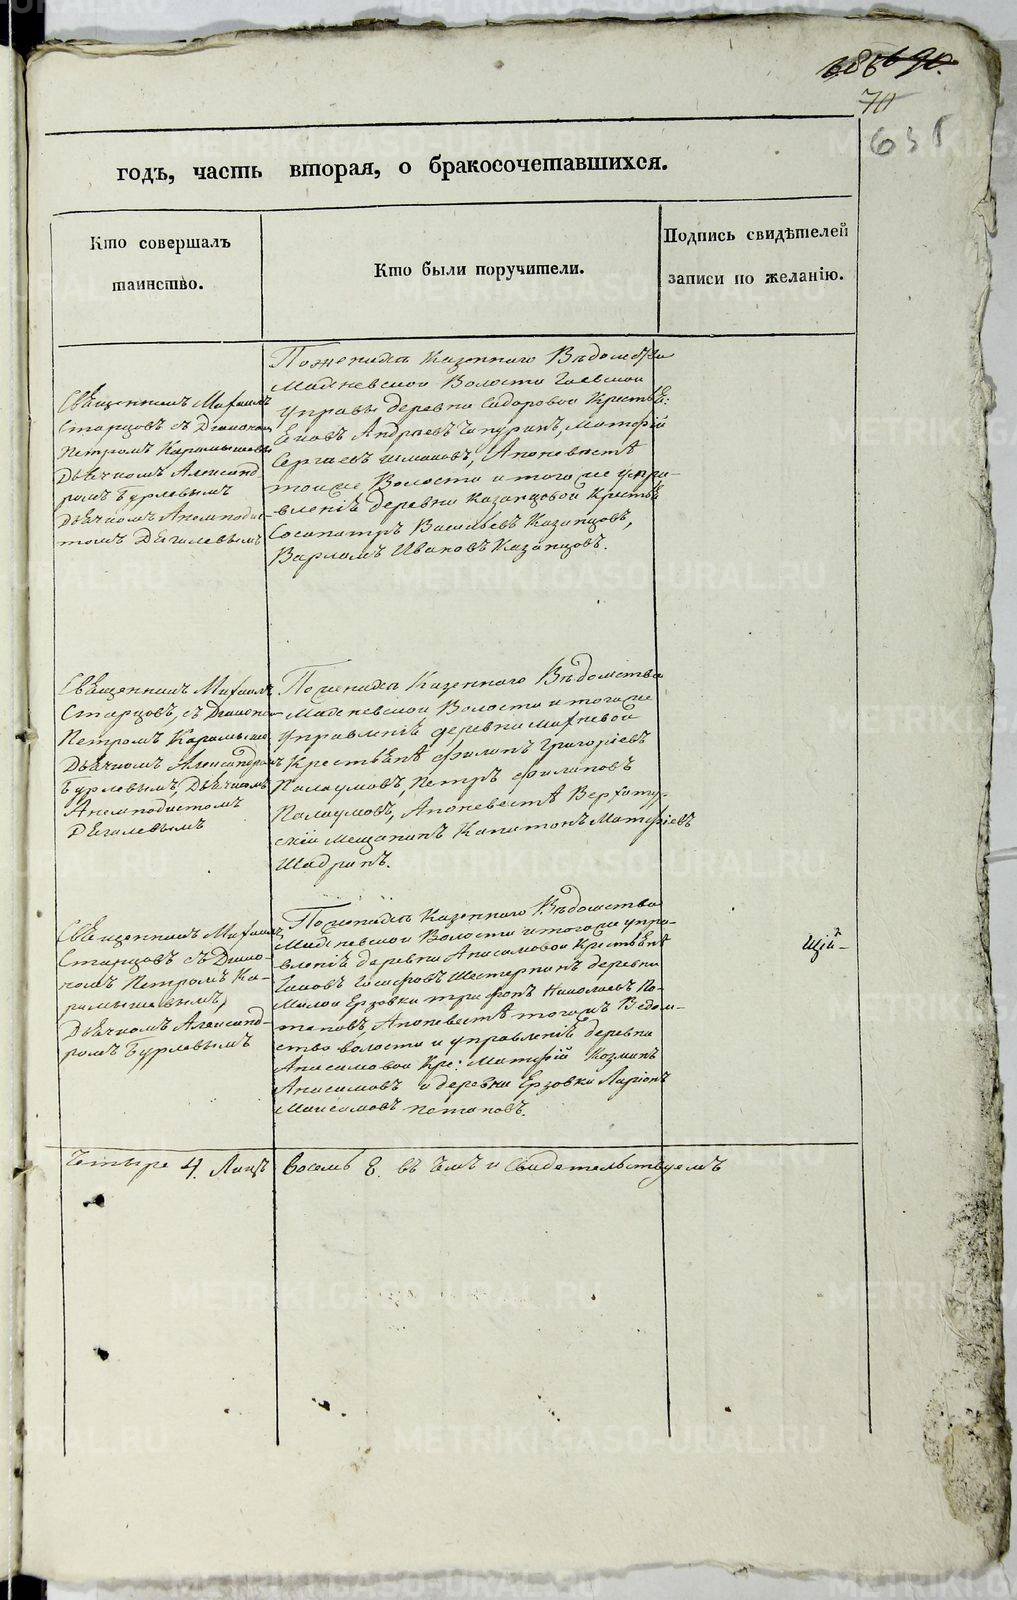 70
годъ, часть вторая, о бракосочетавшихся.
Кто совершалъ
таинство.
Кто были поручители.
Подпись свидѣтелей
записи по желанію.
Священникъ Михаилъ
Старцовъ съ Діакономъ
Петромъ Карамышевы
Дьячкомъ Александ-
ромъ Бурлевымъ
Дьячкомъ Анемподис-
томъ Дягилевымъ
По женихѣ Казеннаго Вѣдомства
Маминской Волости
Управы деревни Сидоровой Крестья:
Андреевъ Чапуринъ, Матфій
Сергѣевъ, А по невѣстѣ
тоя же Волости и того же упра-
вленія деревни Казанцовой Крестья
Сосипатръ Васильевъ Казанцовъ,
Варламъ Ивановъ Казанцовъ.
Священникъ Михаилъ
Старцовъ, съ Діакономъ
Петромъ Карамыше
Дьячкомъ Александромъ
Бурлевымъ, Дьячкомъ
Анемподистомъ
Дягилевымъ
По женихѣ Казеннаго Вѣдомства
Волости и того же
Управленія деревни Махневой
Крестьянѣ Филипъ Григорьевъ
Палаумовъ, Петръ Филиповъ
Палаумовъ, А по невѣстѣ Верхоту-
скій мещанинъ Капитонъ Матфіевъ
Шадринъ.
Священникъ Михаилъ
Старцовъ съ Діако-
номъ Петромъ Ка-
рамышевымъ,
Дьячкомъ Александ-
ромъ Бурлевымъ
По женихѣ Казеннаго Вѣдомства
Волости и того же упра-
вленія деревни Анисимовой Крестьянѣ
Шестернинъ деревни
Малой Ерзовки Трифонъ Николаевъ По-
таповъ, А по невестѣ того жъ Ведом-
ства волости и управленія деревни
Анисимовой Кре: Матфій Козминъ
Анисимовъ и деревни Ерзовки Ларіонъ
Максимовъ Потаповъ.
щій
Четыре 4. Лицъ Восемь 8. въ чемъ и свидетельствуемъ
METRIKI.GASO-URAL.RU